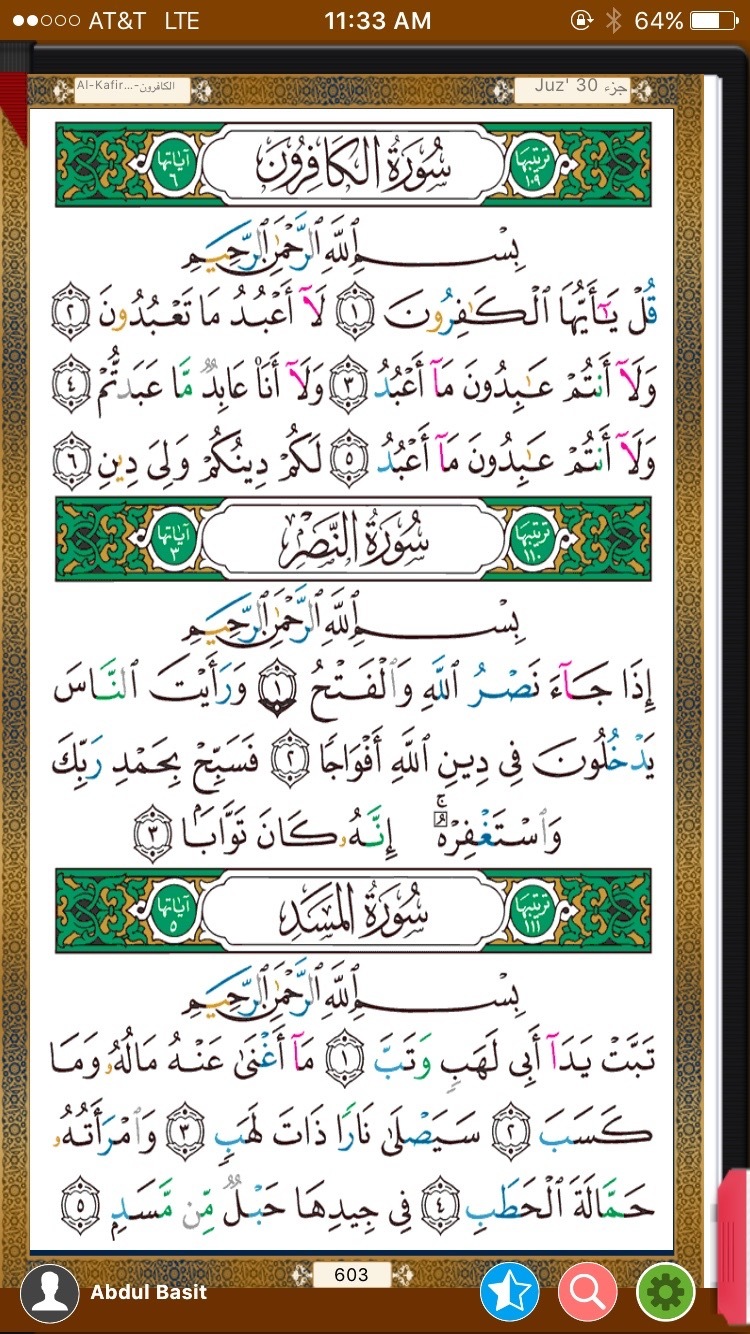 AT&T LTE 11:33 AM 64%
Al-Kafir...-الكافرون Juz' 30 جزء
آياتها ٦ سُورَةُ الكَافِرُونَ ترتيبها ١٠٩
بِسْمِ ٱللَّهِ ٱلرَّحْمَٰنِ ٱلرَّحِيمِ
قُلْ يَٰٓأَيُّهَا ٱلْكَٰفِرُونَ ١ لَآ أَعْبُدُ مَا تَعْبُدُونَ ٢
وَلَآ أَنتُمْ عَٰبِدُونَ مَآ أَعْبُدُ ٣ وَلَآ أَنَا۠ عَابِدٌ مَّا عَبَدتُّمْ ٤
وَلَآ أَنتُمْ عَٰبِدُونَ مَآ أَعْبُدُ ٥ لَكُمْ دِينُكُمْ وَلِىَ دِينِ ٦
آياتها ٣ سُورَةُ النَّصْرِ ترتيبها ١١٠
بِسْمِ ٱللَّهِ ٱلرَّحْمَٰنِ ٱلرَّحِيمِ
إِذَا جَآءَ نَصْرُ ٱللَّهِ وَٱلْفَتْحُ ١ وَرَأَيْتَ ٱلنَّاسَ
يَدْخُلُونَ فِى دِينِ ٱللَّهِ أَفْوَاجًا ٢ فَسَبِّحْ بِحَمْدِ رَبِّكَ
وَٱسْتَغْفِرْهُ ۚ إِنَّهُۥ كَانَ تَوَّابًۢا ٣
آياتها ٥ سُورَةُ المَسَدِ ترتيبها ١١١
بِسْمِ ٱللَّهِ ٱلرَّحْمَٰنِ ٱلرَّحِيمِ
تَبَّتْ يَدَآ أَبِى لَهَبٍ وَتَبَّ ١ مَآ أَغْنَىٰ عَنْهُ مَالُهُۥ وَمَا
كَسَبَ ٢ سَيَصْلَىٰ نَارًا ذَاتَ لَهَبٍ ٣ وَٱمْرَأَتُهُۥ
حَمَّالَةَ ٱلْحَطَبِ ٤ فِى جِيدِهَا حَبْلٌ مِّن مَّسَدٍۭ ٥
603
Abdul Basit